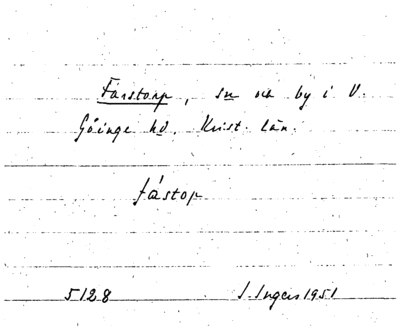 Farstorp, sn och by i V.
Göinge hd. Krist. län.
fástop
5128 I. Ingers 1951